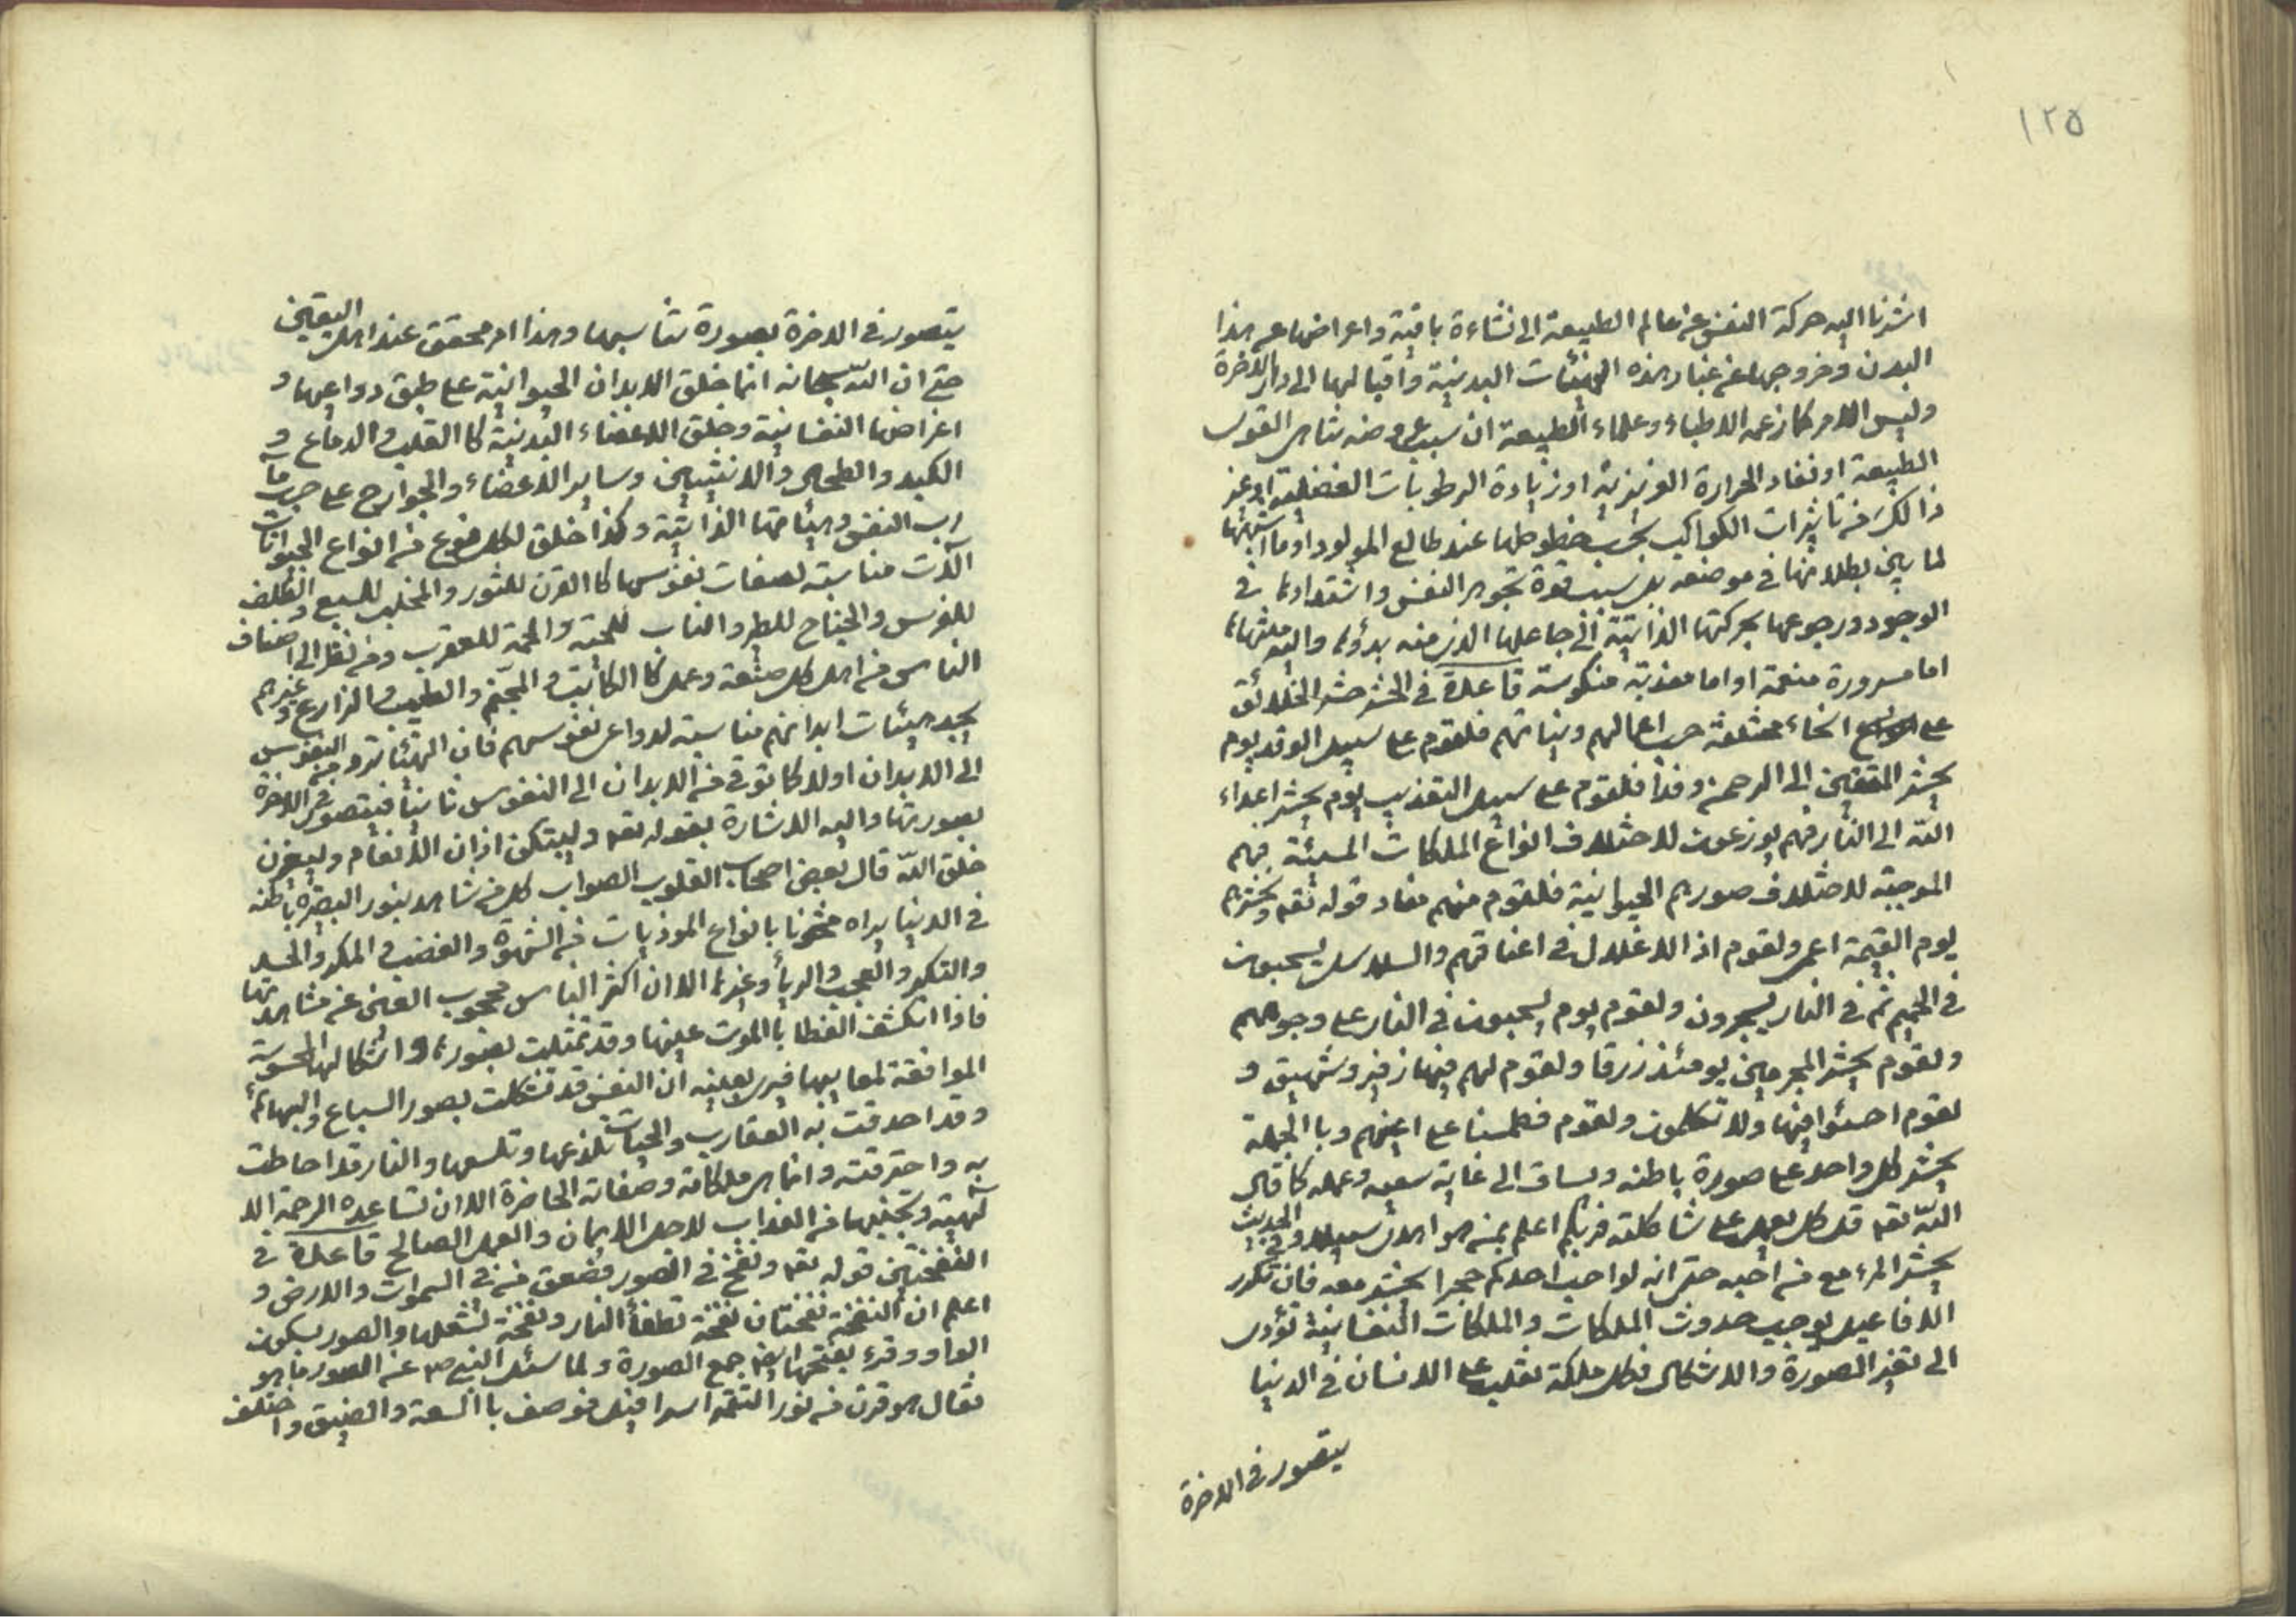 ١٢٥
اشرنا اليه حركة النفس عن عالم الطبيعة الى نشاءة باقية واعراضها عن هذا
البدن وخروجها عن غبار هذه الهيئات البدنية واقبالها الى دار الاخرة
وليس الامر كما زعمه الاطباء وعلماء الطبيعة ان سبب عروضه تناهى القوى
الطبيعة او نفاد الحرارة الغريزية او زيادة الرطوبات الفضلية او غير
ذالك من تاثيرات الكواكب بحسب خطوطها عند طالع المولود او ما اشبهها
لما بين بطلانها فى موضعه بل سببه قوة تجوهر النفس واشتدادها فى
الوجود ورجوعها بحركتها الذاتية الى جاعلها الذى منه بدؤها واليه
اما مسرورة منعمة او اما معذبة منكوسة قاعدة فى الحشر حشر الخلائق
على انحاء مختلفة حسب اعمالهم ونياتهم فلقوم على سبيل الوفد يوم
يحشر المتقين الى الرحمن وفدا فلقوم على سبيل التعذيب يوم يحشر اعداء
الله الى النار فهم يوزعون لاختلاف انواع الملكات السيئة فيهم
الموجبة لاختلاف صورهم الحيوانية فلقوم منهم مفاد قوله تعم ونحشرهم
يوم القيمة اعمى ولقوم اذ الاغلال فى اعناقهم والسلاسل يسحبون
فى الحميم ثم فى النار يسجرون ولقوم يوم يسحبون فى النار على وجوههم
ولقوم يحشر المجرمين يومئذ زرقا ولقوم لهم فيها زفير وشهيق و
لقوم اخسئوا فيها ولا تكلمون ولقوم فطمسنا على اعينهم وبا الجملة
يحشر كل واحد على صورة باطنه ويساق الى غاية سعيه وعمله كما قال
الله تعم قل كل يعمل على شاكلته فربكم اعلم بمن هو اهدى سبيلا وفى الحديث
يحشر المرء مع من احبه حتى انه لو احب احدكم حجرا يحشر معه فان تكرر
الافاعيل يوجب حدوث الملكات والملكات النفسانية تؤدى
الى تغير الصورة والاشكال فكل ملكة تغلب على الانسان فى الدنيا
يتصور فى الاخرة
يتصور فى الاخرة بصورة تناسبها وهذا امر محقق عند اهل اليقين
حتى ان الله سبحانه انما خلق الابدان الحيوانية على طبق دواعيها و
اغراضها النفسانية وخلق الاعضاء البدنية كا القلب والدماغ و
الكبد والطحال والانثيين وساير الاعضاء والجوارح على حسب ما
رب النفس وهيئاتها الذاتية وكذا خلق لكل نوع من انواع الحيوانات
آلات مناسبة لصفات نفوسها كا القرن للثور والمخلب للسبع والظلف
للفرس والجناح للطير والناب للحية والحمة للعقرب ومن نظر الى اصناف
الناس من اهل كل صنعة وعمل كا الكاتب والمنجم والطبيب والزارع وغيرهم
يجد هيئات ابدانهم مناسبة لدواعى نفوسهم فان الهيئات من النفوس
الى الابدان اولا كما ترقى من الابدان الى النفوس ثانيا فيتصور فى الاخرة
بصورتها واليه الاشارة بقوله تعم وليبتكن اذان الانعام وليغيرن
خلق الله قال بعض اصحاب القلوب الصواب كل من شاهد بنور البصيرة باطنه
فى الدنيا يراه مشحونا بانواع الموذيات من الشهوة والغضب والمكر والحسد
والتكبر والعجب والرياء وغيرها الا ان اكثر الناس محجوب العين عن مشاهدتها
فاذا انكشف الغطا با الموت عاينها وقد تمثلت بصورها واشكالها المحسوسة
الموافقة لمعانيها فيرى بعينه ان النفس قد تشكلت بصور السباع والبهائم
وقد احدقت به العقارب والحيات تلذعها وتلسعها والنار قد احاطت
به واحترقته وانما هى ملكاته وصفاته الحاضرة الا ان تساعده الرحمة الا
لهية وتجنيها من العذاب لاجل الايمان والعمل الصالح قاعدة فى
النفختين قوله تعم ونفخ فى الصور فصعق من فى السموات والارض و
اعلم ان النفخة نفختان نفخة تطفأ النار ونفخة تشعلها والصور بسكون
الواو وقرء بفتحها ايضا جمع الصورة ولما سئل النبى ص عن الصور ما هو
فقال هو قرن من نور التقمه اسرافيل فوصف با السعة والضيق واختلف